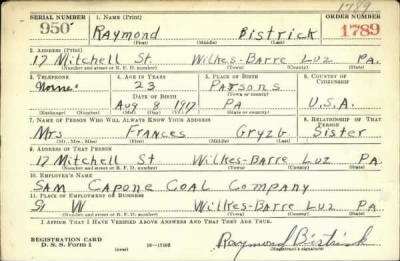 1789
SERIAL NUMBER 1. NAME (Print) ORDER NUMBER
950 Raymond Bistrick 1789
(First) (Middle) (Last)
2. ADDRESS (Print)
17 Mitchell St. Wilkes-Barre Luz Pa.
(Number and street or R. F. D. number) (Town) (County) (State)
3. TELEPHONE 4. AGE IN YEARS 5. PLACE OF BIRTH 6. COUNTRY OF CITIZENSHIP
None 23 Parsons
(Town or county)
DATE OF BIRTH
Aug 8 1917 Pa U.S.A.
(Exchange) (Number) (Mo.) (Day) (Yr.) (State or country)
7. NAME OF PERSON WHO WILL ALWAYS KNOW YOUR ADDRESS 8. RELATIONSHIP OF THAT PERSON
Mrs Frances Gryzb Sister
(Mr., Mrs., Miss) (First) (Middle) (Last)
9. ADDRESS OF THAT PERSON
17 Mitchell St Wilkes-Barre Luz Pa
(Number and street or R. F. D. number) (Town) (County) (State)
10. EMPLOYER'S NAME
Sam Capone Coal Company
11. PLACE OF EMPLOYMENT OR BUSINESS
W Wilkes-Barre Luz Pa
(Number and street or R. F. D. number) (Town) (County) (State)
I AFFIRM THAT I HAVE VERIFIED ABOVE ANSWERS AND THAT THEY ARE TRUE.
REGISTRATION CARD
D. S. S. Form 1 (over) Raymond Bistrick
(Registrant's signature)